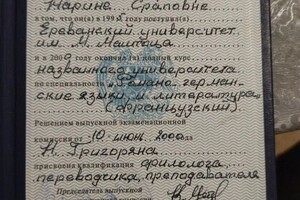 Нарине Сраповне
в том, что он(а) в 199 году поступил(а)
Ереванский университет
им. М. Маштоца
и в 200 году окончил(а) полный курс
названного университета
по специальности "Романо-герман-
ские языки и литература
(французский)
Решением выпускной экзаменационной
комиссии от "10" июн. 2000
Н. Григоряна
присвоена квалификация филолога
переводчика, преподавателя
Председатель выпускной